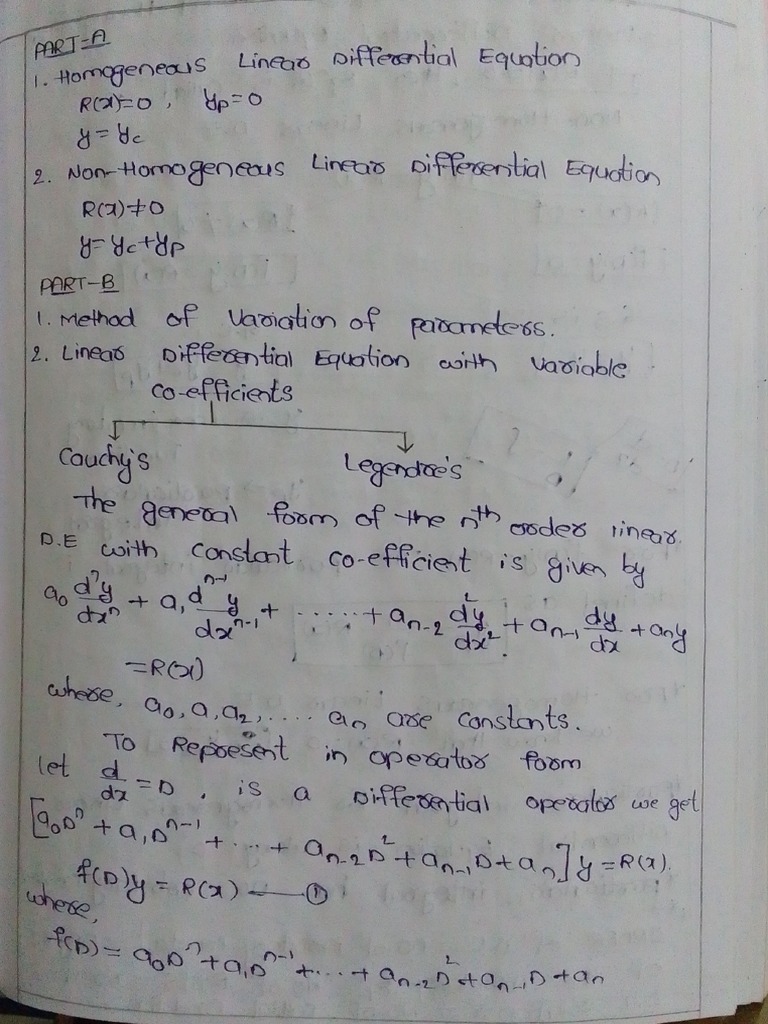 PART-A
1. Homogeneous Linear Differential Equation
R(x)=0, yp=0
y=yc
2. Non-Homogeneous Linear Differential Equation
R(x)≠0
y=yc+yp
PART-B
1. Method of Variation of parameters.
2. Linear Differential Equation with variable
co-efficients
Cauchy's Legendre's
The general form of the nth order linear
D.E with constant co-efficient is given by
a₀ dⁿy/dxⁿ + a₁ dⁿ⁻¹y/dxⁿ⁻¹ + ...... + aₙ₋₂ d²y/dx² + aₙ₋₁ dy/dx + aₙy
=R(x)
where, a₀, a₁ a₂, .... aₙ are constants.
To Represent in operator form
let d/dx = D. is a Differential operator we get
[a₀Dⁿ + a₁Dⁿ⁻¹ + ... + aₙ₋₂D² + aₙ₋₁D + aₙ]y = R(x).
f(D)y = R(x) — ①
where,
f(D) = a₀Dⁿ + a₁Dⁿ⁻¹ + ... + aₙ₋₂D² + aₙ₋₁D + aₙ